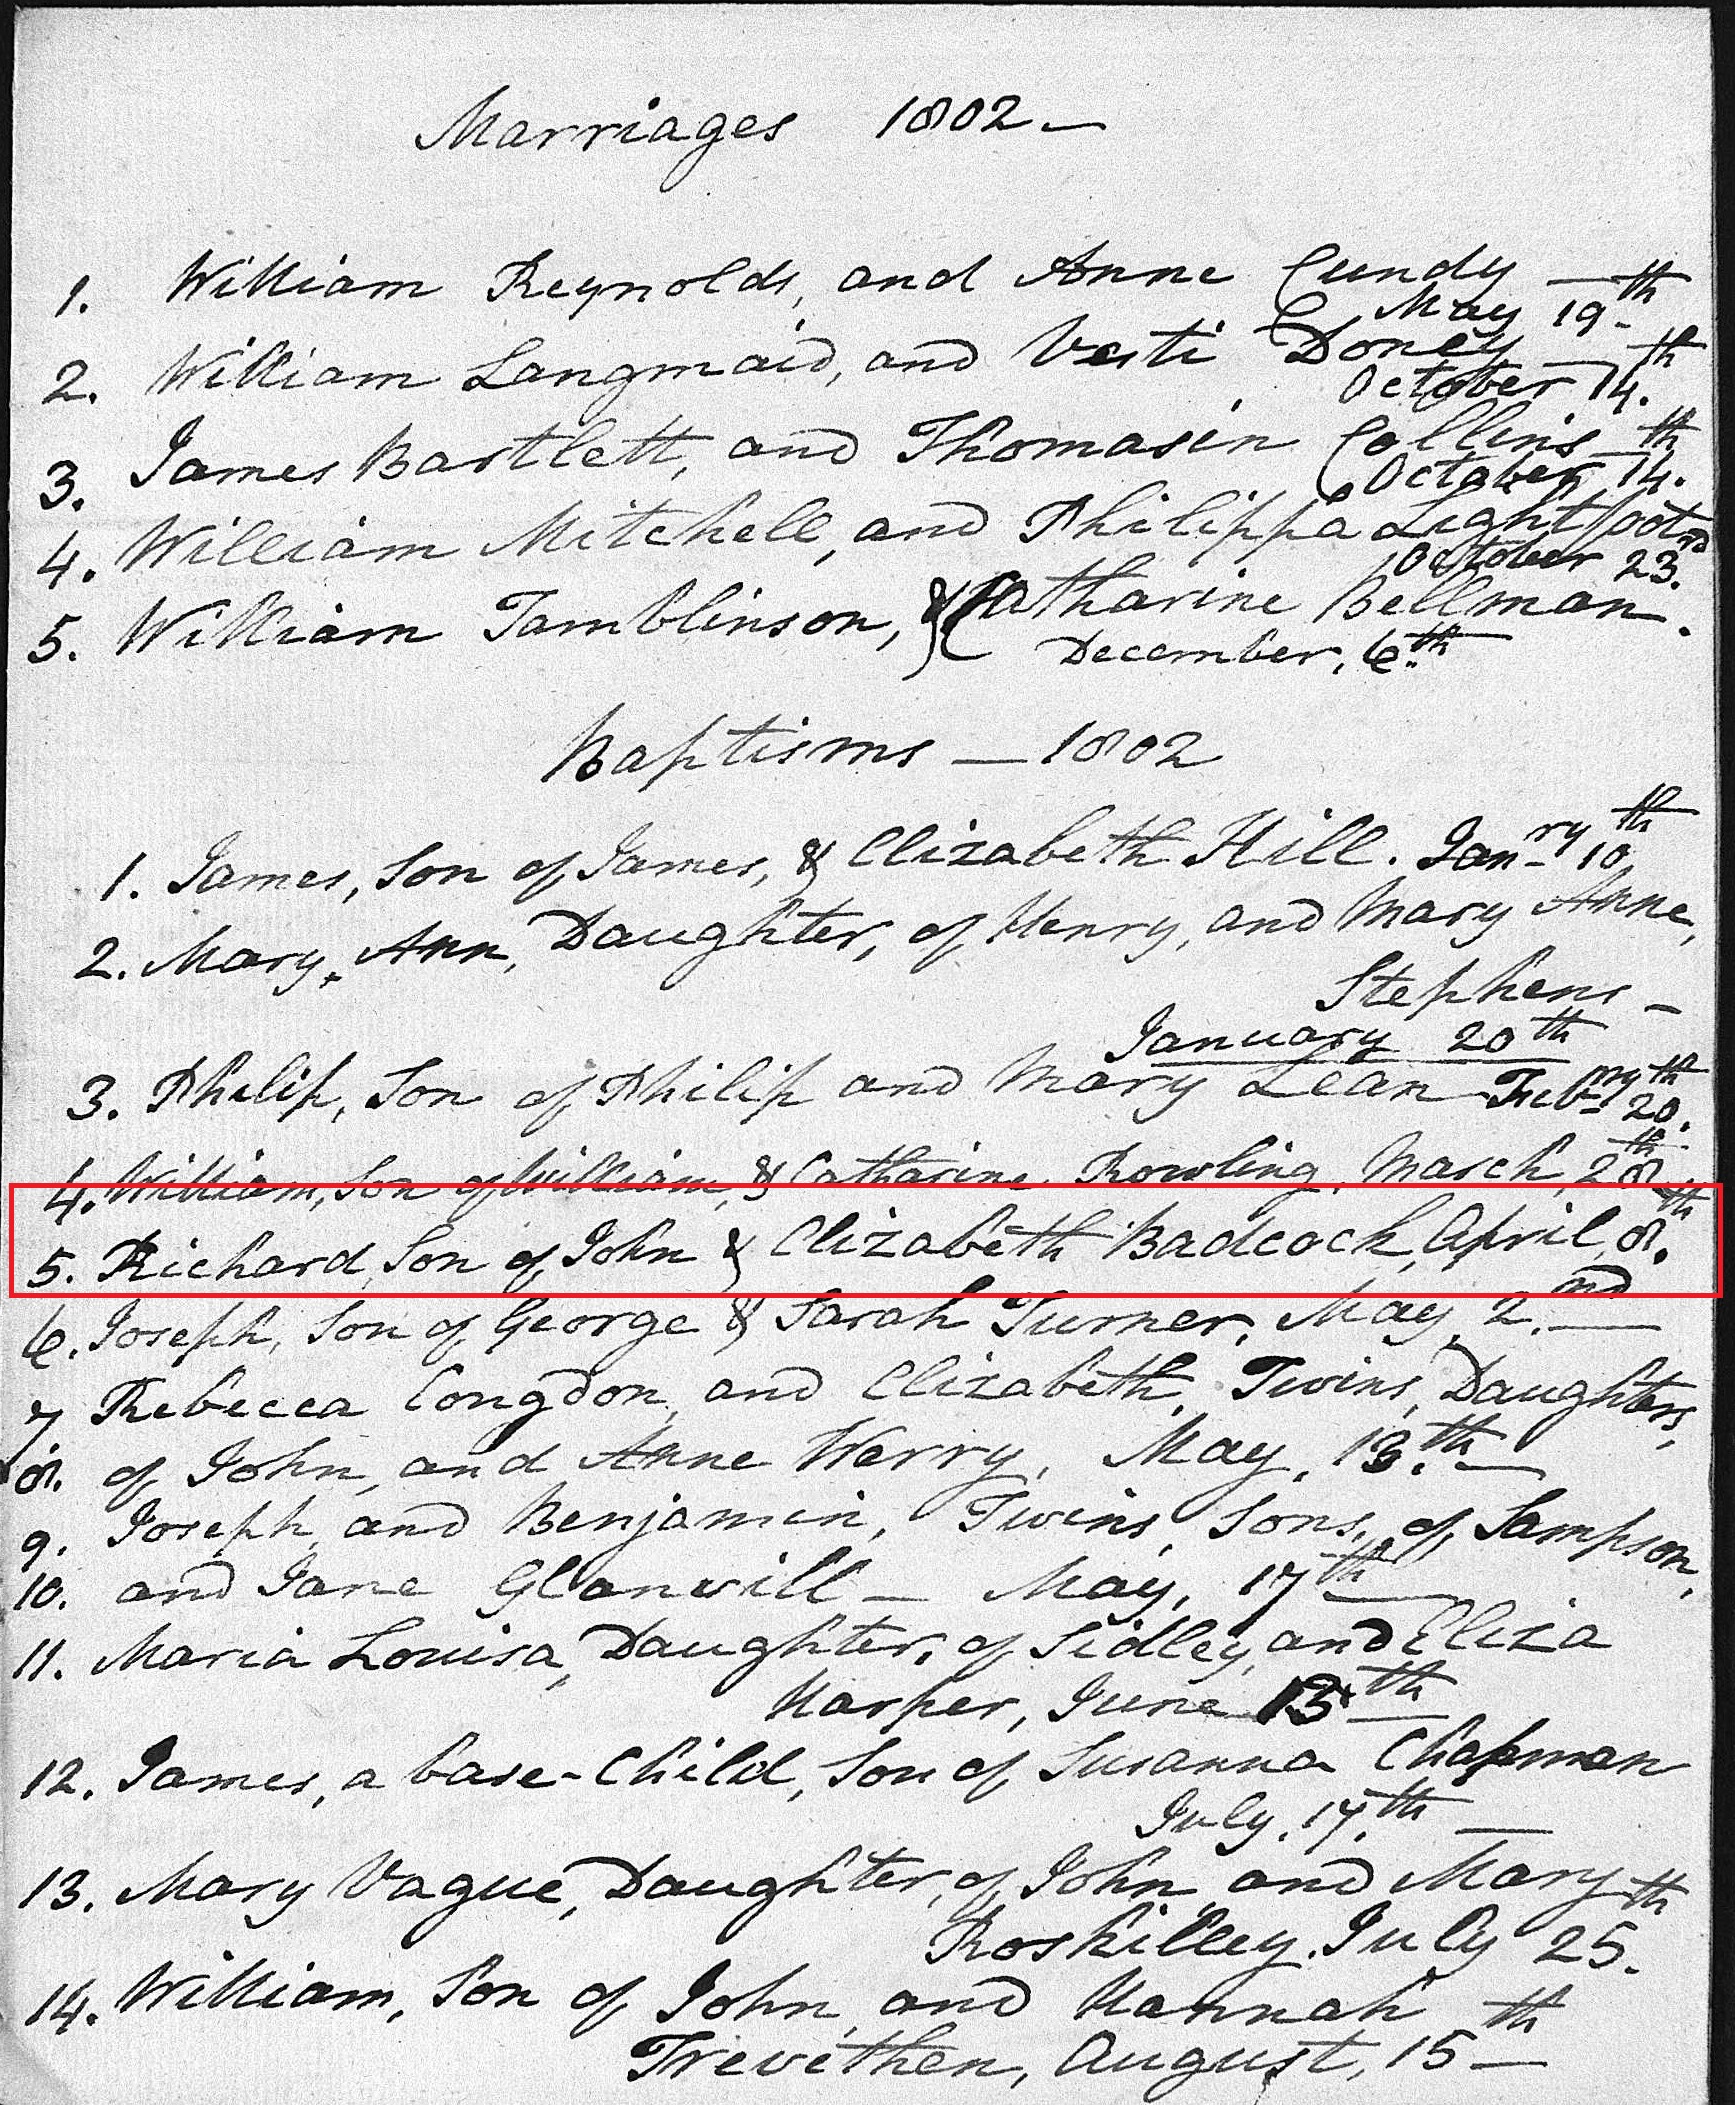 Marriages 1802 —
1. William Reynolds, and Anne Cundy —
May 19th
2. William Langmaid, and Vesti Doney —
October 14th.
3. James Bartlett, and Thomasin Collins
October 14th.
4. William Mitchell, and Philippa Lightfoot
October 23rd.
5. William Tamblinson, & Catharine Bellman.
December, 6th
Baptisms — 1802
1. James, Son of James, & Elizabeth Hill. Janry 10th
2. Mary, Ann, Daughter, of Henry, and Mary Anne,
Stephens —
January 20th
3. Philip, Son of Philip and Mary Lean Febry 20th.
4. William, Son of William, & Catharine Rowling, March, 28th
5. Richard, Son of John & Elizabeth Badcock, April, 8th.
6. Joseph, Son of George & Sarah Turner, May, 2nd.
7 Rebecca Congdon, and Elizabeth, Twins, Daughters,
8. of John, and Anne Werry, May, 13th.
9. Joseph, and Benjamin, Twins, Sons, of Sampson,
10. and Jane Glanvill — May, 17th
11. Maria Louisa, Daughter, of Sidley, and Eliza
Harper, June 13th
12. James, a base-Child, Son of Susanna Chapman
July, 17th —
13. Mary Vague, Daughter, of John, and Mary
Roskilley, July 25th.
14. William, Son of John, and Hannah
Trevethen, August, 15th —